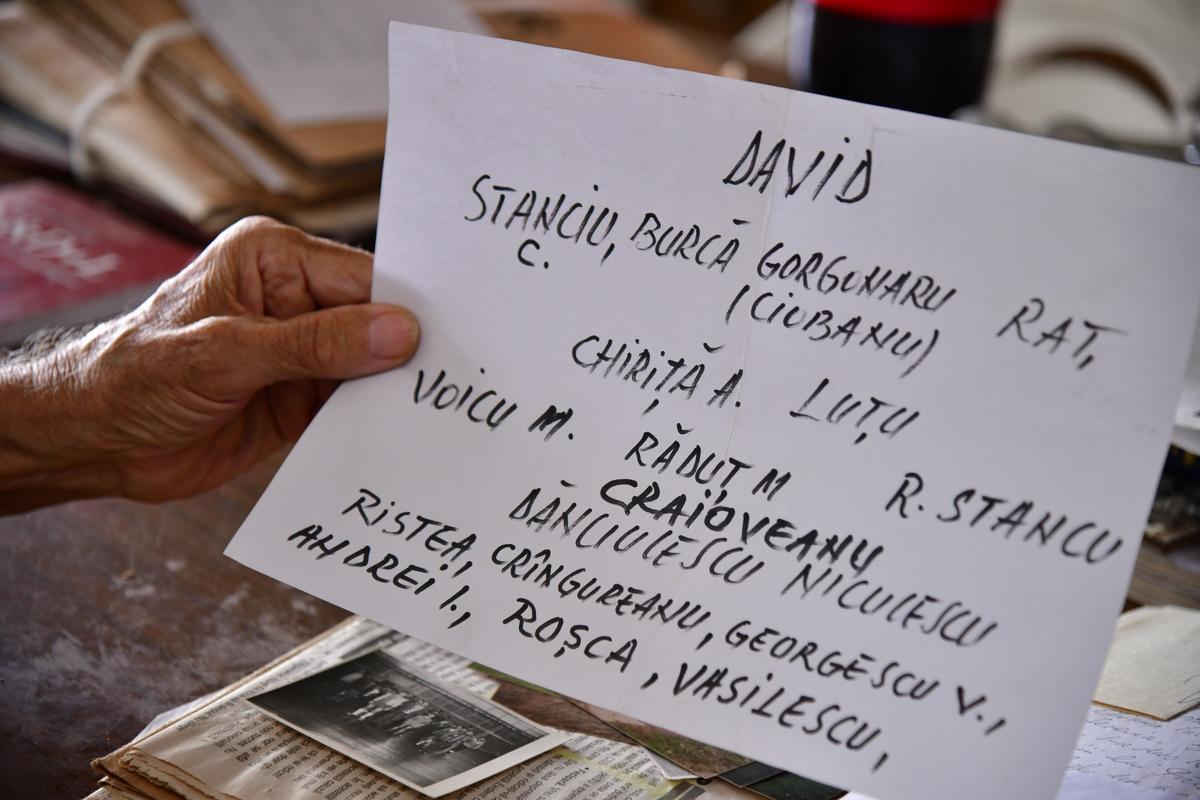 DAVID
STANCIU, BURCĂ GORGONARU RAT,
C. (CIOBANU)
CHIRIȚĂ A. LUȚU
VOICU M. RĂDUȚ M R. STANCU
CRAIOVEANU
DĂNCIULESCU NICULESCU
RISTEA, CRÎNGUREANU, GEORGESCU V.,
ANDREI I., ROȘCA, VASILESCU,